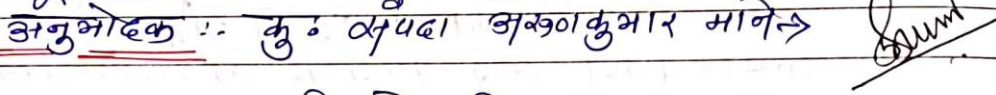 अनुमोदक :- कु. संपदा अरुणकुमार माने →